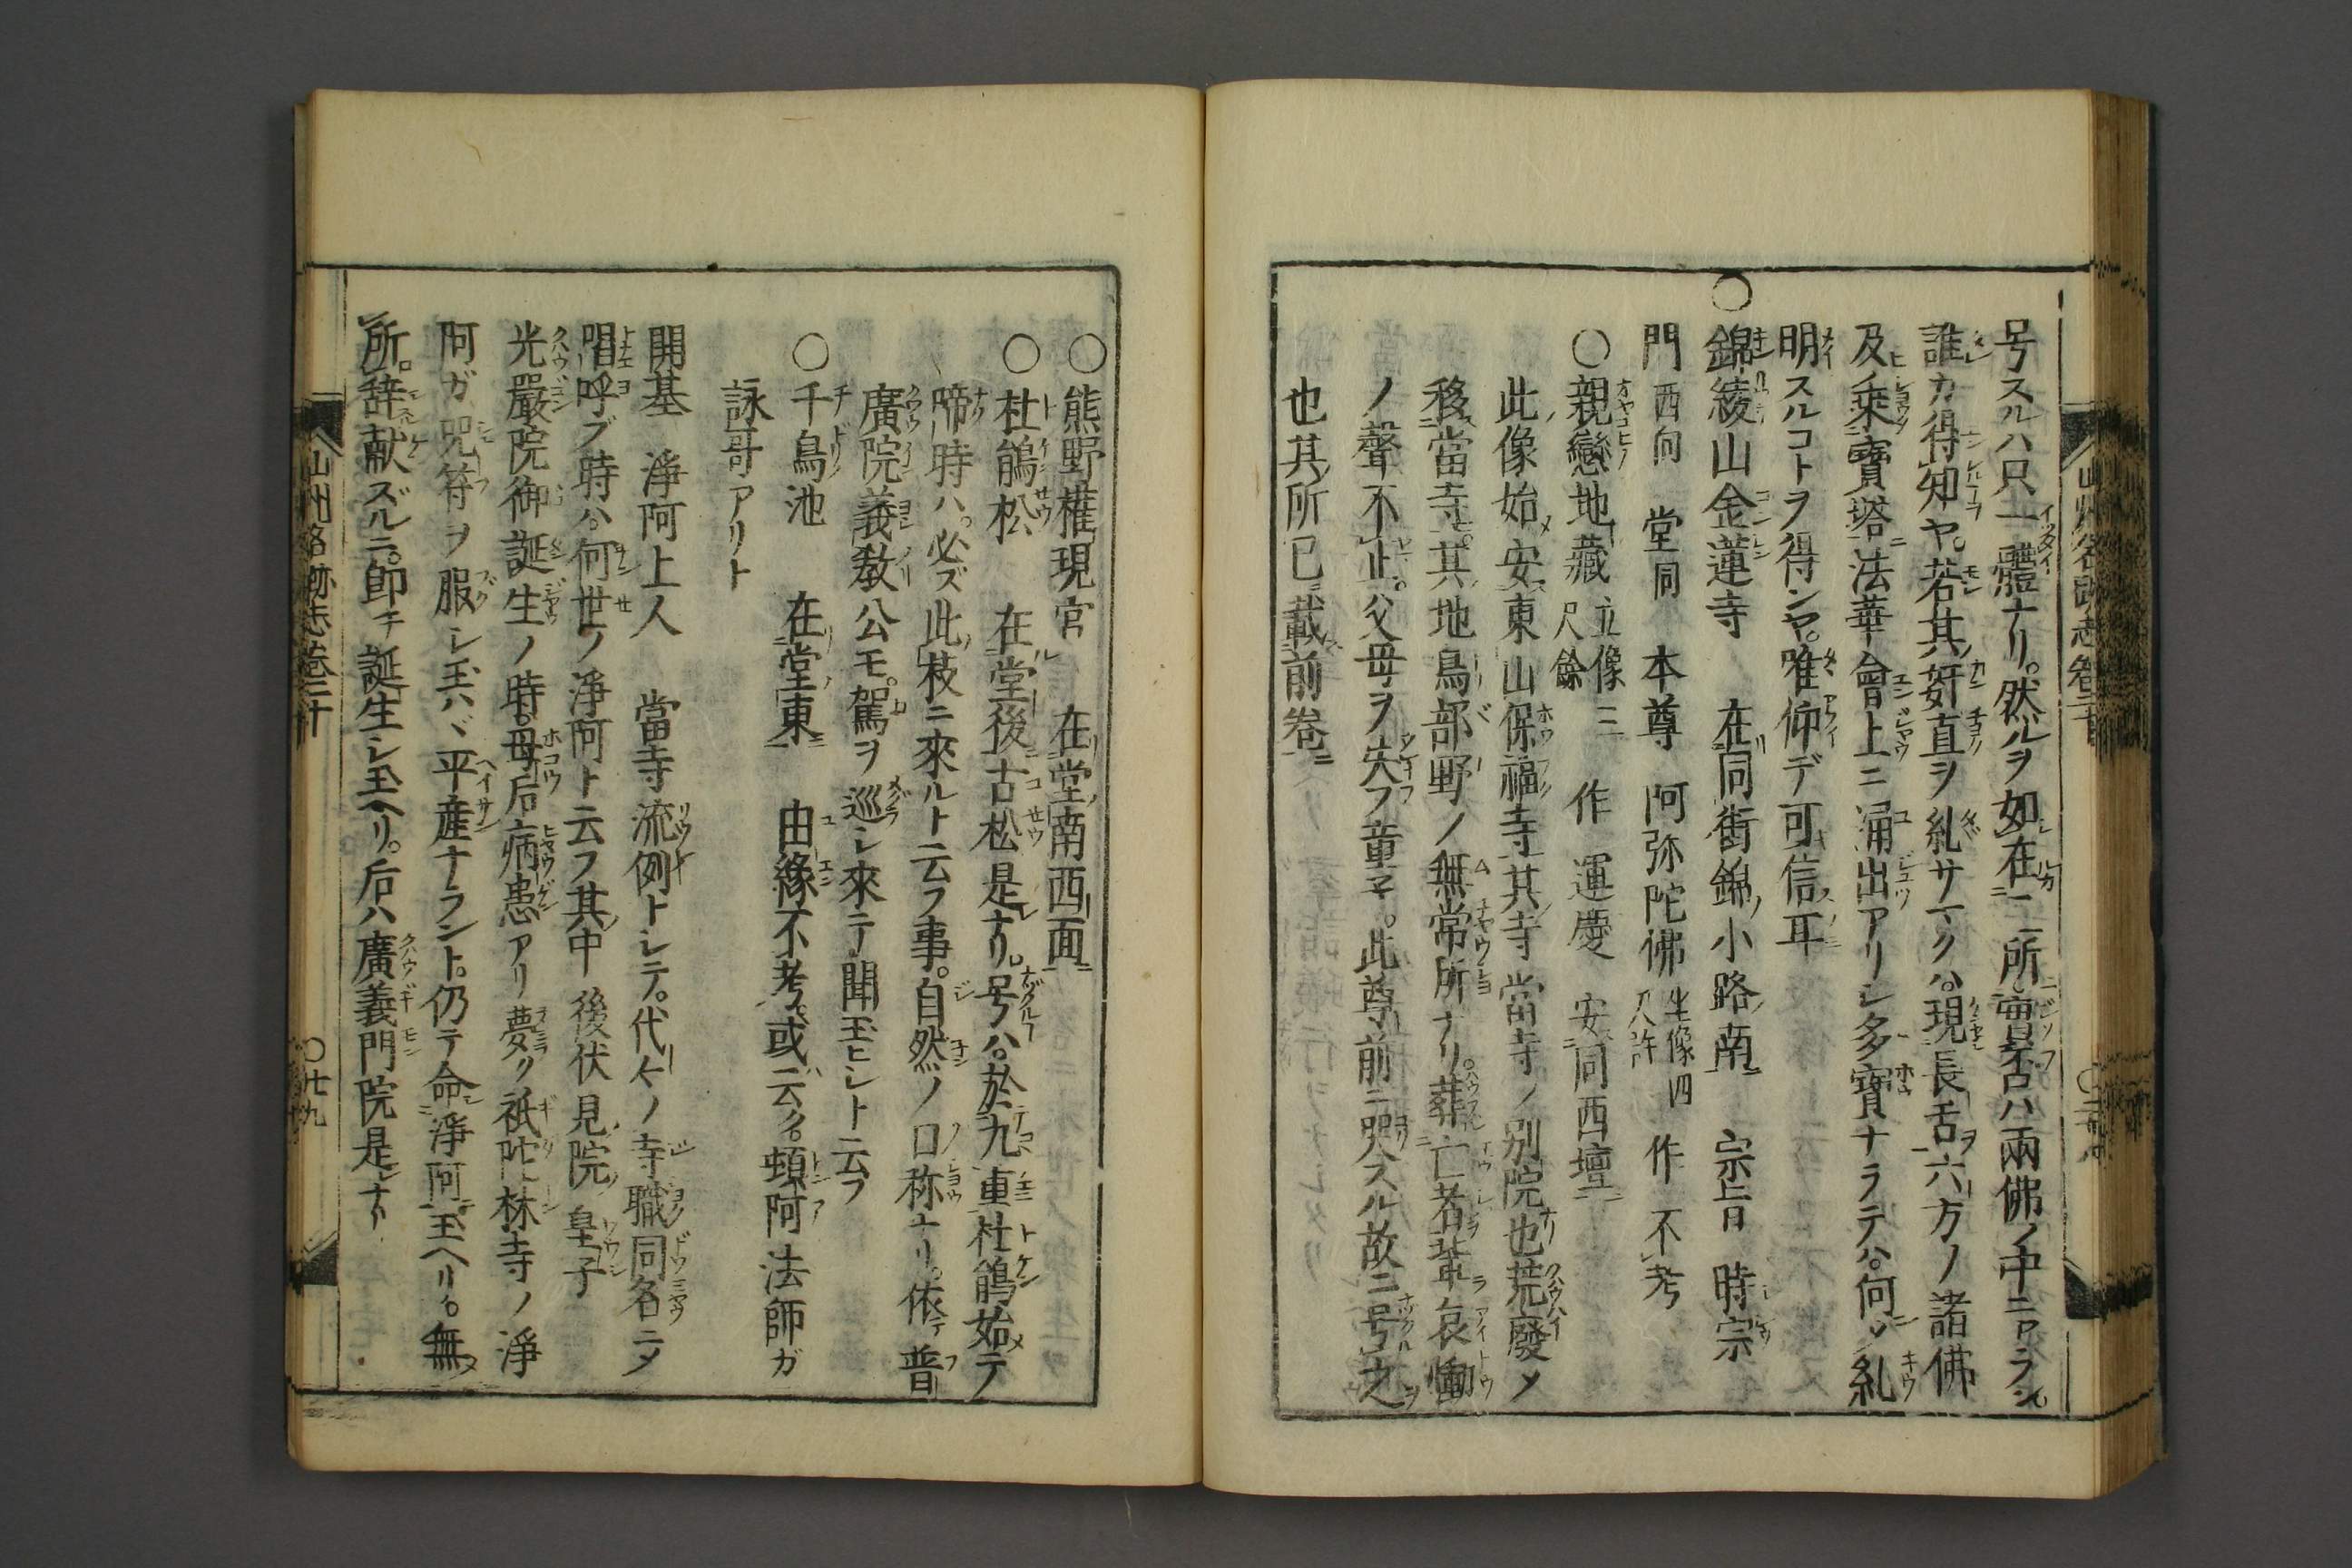 号スルハ只一體ナリ。然ルヲ如在二一所實否ハ兩佛ノ中ニアラン。
誰カ得知ヤ。若其奸直ヲ糺サマクハ。現長舌六方ノ諸佛
及乘寶塔法華會上ニ涌出アリシ多寶ナラテハ。何ソ糺
明スルコトヲ得ンヤ。唯仰デ可信耳
○錦綾山金蓮寺 在同街錦小路南 宗旨 時宗
門 西向 堂同 本尊 阿弥陀佛 坐像四尺許 作不考
○親戀地藏 立像三尺餘 作 運慶 安同西壇
此像始安東山保福寺其寺當寺ノ別院也荒廢〆
移當寺。其地鳥部野ノ無常所ナリ。葬亡者輩哀慟
ノ聲不止。父母ヲ失フ童子。此尊前ニ哭スル故ニ号之
也其所已載前卷
山州名跡志卷二十
○熊野權現宮 在堂南西面
○杜鵑松 在堂後古松是ナリ。号ハ。於九重杜鵑始テ
啼時ハ。必ズ此枝ニ來ルト云フ事。自然ノ口称ナリ。依テ普
廣院義教公モ。駕ヲ巡シ來テ聞玉ヒシト云フ
○千鳥池 在堂東 由緣不考。或云。頓阿法師ガ
詠哥アリト
開基 淨阿上人 當寺流例トシテ。代々ノ寺職同名ニ〆
唱呼ブ時ハ。何世ノ淨阿ト云フ其中後伏見院皇子
光嚴院御誕生ノ時。母后病患アリ夢ク祇陀林寺ノ淨
阿ガ咒符ヲ服シ玉ハヾ平産ナラント。仍テ命淨阿玉ヘリ。無
所。辞献ズルニ。即チ誕生シ玉ヘリ。后ハ廣義門院是ナリ
山州名跡志卷二十
○廿九